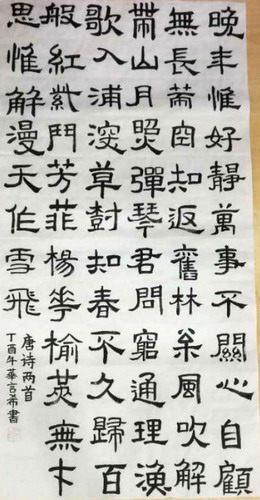 晚年惟好靜萬事不關心自顧
無長策空知返舊林松風吹解
帶山月照彈琴君問窮通理漁
歌入浦深草樹知春不久歸百
般紅紫鬥芳菲楊花榆莢無才
思惟解漫天作雪飛
唐诗两首
丁酉年華言希書